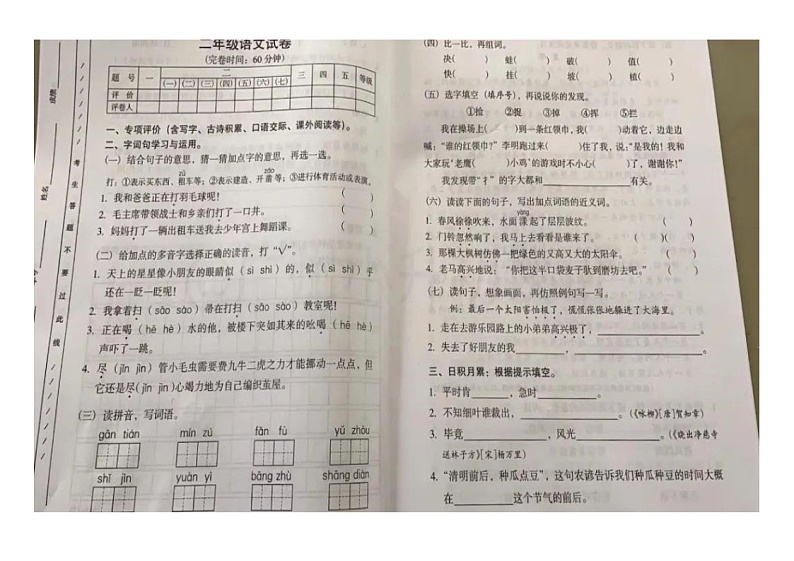 二年级语文试卷
(完卷时间：60分钟)
题 号 一 二 三 四 五 等级
(一) (二) (三) (四) (五) (六) (七)
评 价
评卷人
一、专项评价（含写字、古诗积累、口语交际、课外阅读等）。
二、字词句学习与运用。
(一) 结合句子的意思，猜一猜加点字的意思，再选一选。
zū záo
打：①表示买东西、租车等；②表示建造、开凿等；③进行体育活动或表演。
1. 我和爸爸正在打羽毛球呢！ ( )
2. 毛主席带领战士和乡亲们打了一口井。 ( )
3. 妈妈打了一辆出租车送我去少年宫上舞蹈课。 ( )
(二) 给加点的多音字选择正确的读音，打“√”。
1. 天上的星星像小朋友的眼睛似（sì shì）的，似（sì shì）乎
还在一眨一眨呢！
2. 我拿着扫（sǎo sào）帚在打扫（sǎo sào）教室呢！
3. 正在喝（hē hè）水的他，被楼下突如其来的吆喝（hē hè）
声吓了一跳。
4. 尽（jǐn jìn）管小毛虫需要费九牛二虎之力才能挪动一点点，但
它还是尽（jǐn jìn）心竭力地为自己编织茧屋。
(三) 读拼音，写词语。
gǎn tián mín zú fān fù yǔ zhòu
shǐ jìn yuán yì bāng zhù shāng diàn
(四) 比一比，再组词。
决( ) 蛙( ) 破( ) 值( )
快( ) 挂( ) 坡( ) 植( )
(五) 选字填空（填序号），再说说你的发现。
①捡 ②捉 ③掉 ④挥 ⑤拦
我在操场上( )到一条红领巾，我( )动着它，边走边
喊：“谁的红领巾？”李明跑过来( )住了我，说：“是我的！我和
大家玩‘老鹰( )小鸡’的游戏时不小心( )了，谢谢你！”
我发现带“扌”的字大都和 有关。
(六) 读读下面的句子，写出加点词语的近义词。
yàng
1. 春风徐徐吹来，水面漾起了层层波纹。 ( )
2. 门铃忽然响了，我马上去看看是谁来了。 ( )( )
3. 那棵大枫树仿佛一把绿色的又高又大的太阳伞。 ( )
4. 老马高兴地说：“你把这半口袋麦子驮到磨坊去吧。” ( )
(七) 读句子，想象画面，再仿照例句写一写。
例：最后一个太阳害怕极了，慌慌张张地躲进了大海里。
1. 走在去游乐园路上的小弟弟高兴极了， 。
2. 失去了好朋友的我 ， 。
三、日积月累：根据提示填空。
1. 平时肯 ，急时 。
2. 不知细叶谁裁出， 。(《咏柳》[唐]贺知章)
3. 毕竟 ，风光 。(《晓出净慈寺
送林子方》[宋]杨万里)
4. “清明前后，种瓜点豆”，这句农谚告诉我们种瓜种豆的时间大概
在 这个节气的前后。
考生答题不要过此线
姓名
成绩